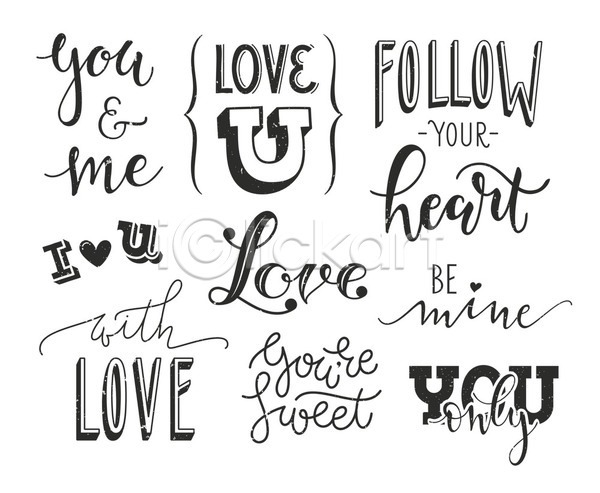 you
&
me
LOVE
U
FOLLOW
-YOUR-
heart
I ♥ U
iclickart
Love
BE
mine
with
LOVE
You're
Sweet
YOU
only